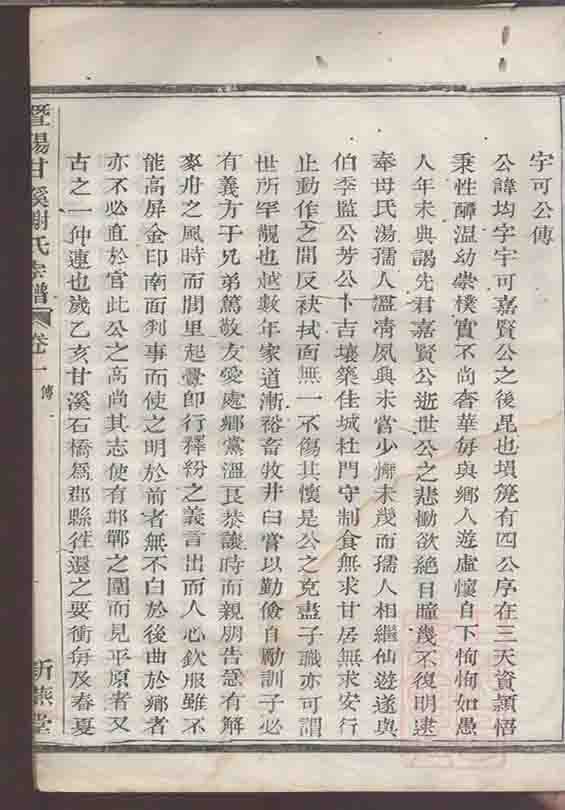 字可公傳
公諱均字字可嘉賢公之後昆也塤箎有四公序在三天資頴悟
秉性醇温幼崇樸實不尚奢華每與鄉人遊虛懷自下恂恂如愚
人年未典謁先君嘉賢公逝世公之悲慟欲絕目瞳幾不復明逮
奉母氏湯孺人溫凊夙興未嘗少懈未幾而孺人相繼仙遊遂與
伯季監公芳公卜吉壤築佳城杜門守制食無求甘居無求安行
止動作之間反袂拭面無一不傷其懷是公之克盡子職亦可謂
世所罕覯也越數年家道漸裕畜牧井臼嘗以勤儉自勵訓子必
有義方于兄弟篤敬友愛處鄉黨溫良恭讓時而親朋告急有解
麥舟之風時而閭里起釁卽行釋紛之義言出而人心欽服雖不
能高屏金印南面剚事而使之明於前者無不白於後曲於鄉者
亦不必直於官此公之高尚其志使有邯鄲之圍而見平原者又
古之一仲連也歲乙亥甘溪石橋爲郡縣徃還之要衝每及春夏
暨陽甘溪謝氏宗譜
卷一
傳
一
新燕堂